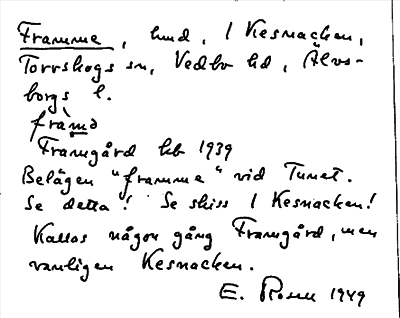 Framme, hmd, 1 Kesnacken,
Torrskogs sn, Vedbo hd, Älvs-
borgs l.
fràmə
Framgård hb 1939
Belägen "framme" vid Tunet.
Se detta! Se skiss 1 Kesnacken!
Kallas någon gång Framgård, men
vanligen Kesnacken.
E. Rosen 1949